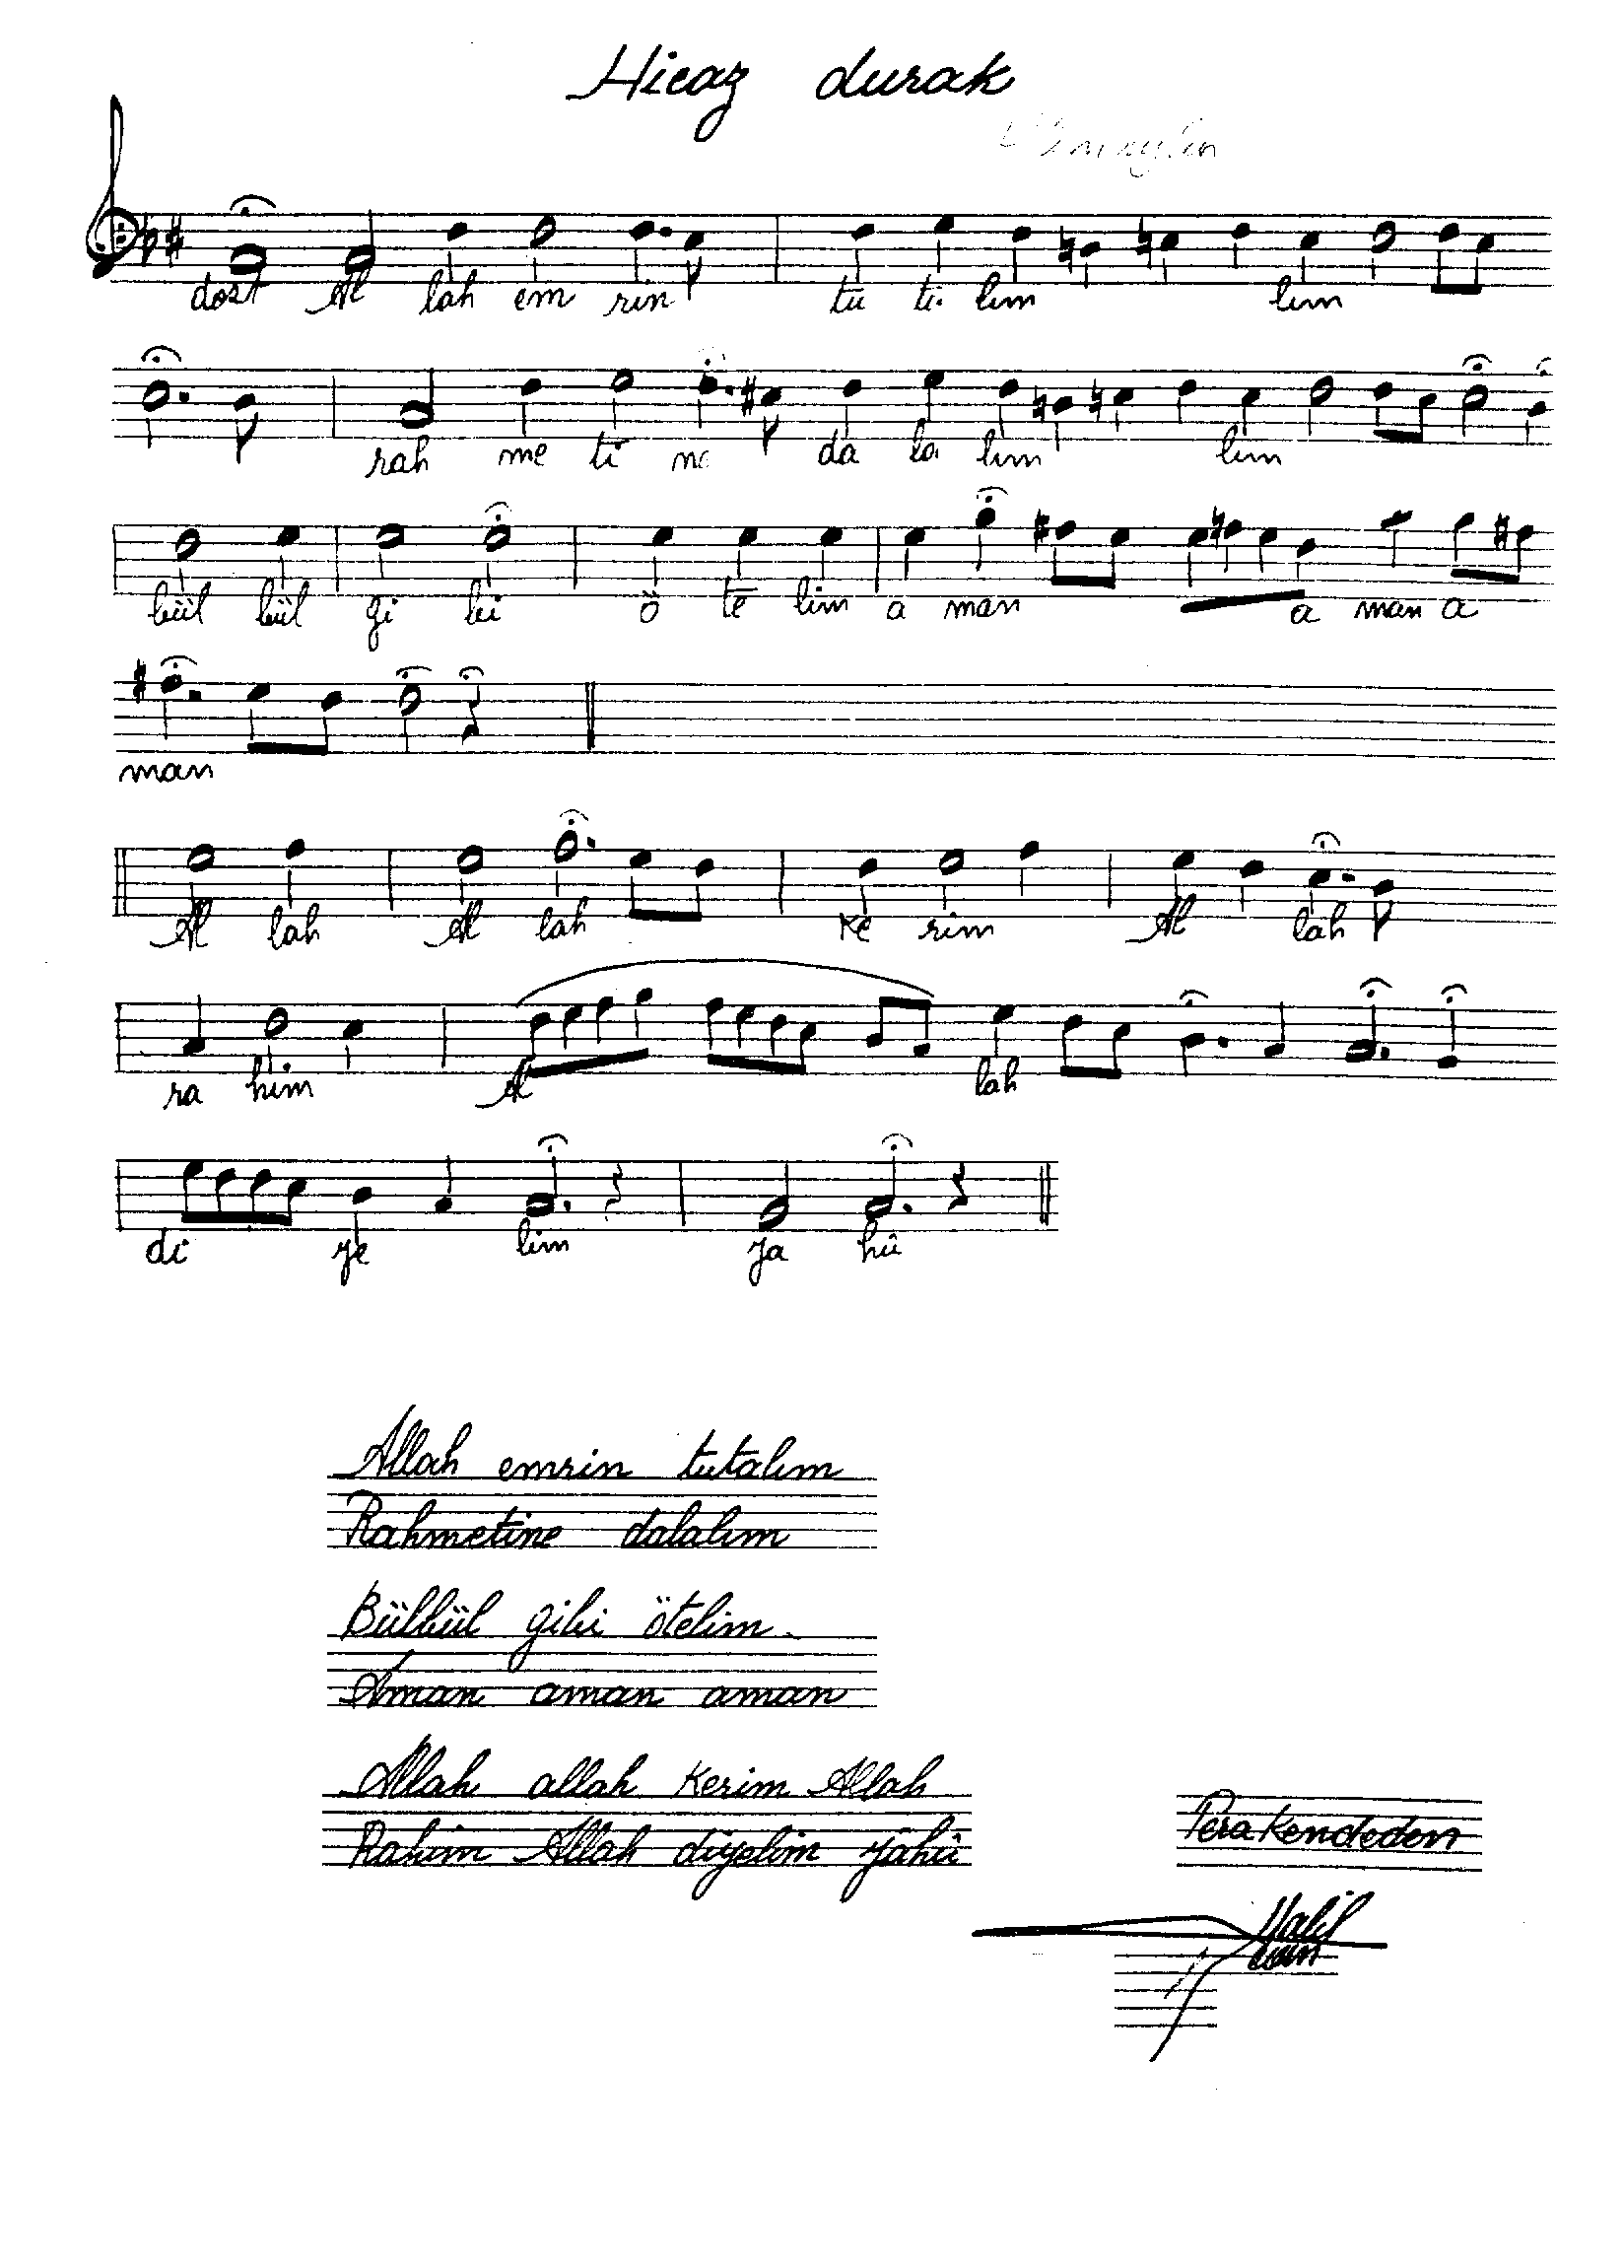 Hicaz durak
dost Al lah em rin tu ta lım lım
rah me ti ne da la lım lım
bül bül gi bi ö te lim a man a man a
man
Al lah Al lah Ke rim Al lah
ra him Al lah
di ye lim ya hû
Allah emrin tutalım
Rahmetine dalalım
Bülbül gibi ötelim
Aman aman aman
Allah allah Kerim Allah
Rahim Allah diyelim yâhû
Perakendeden
Halil